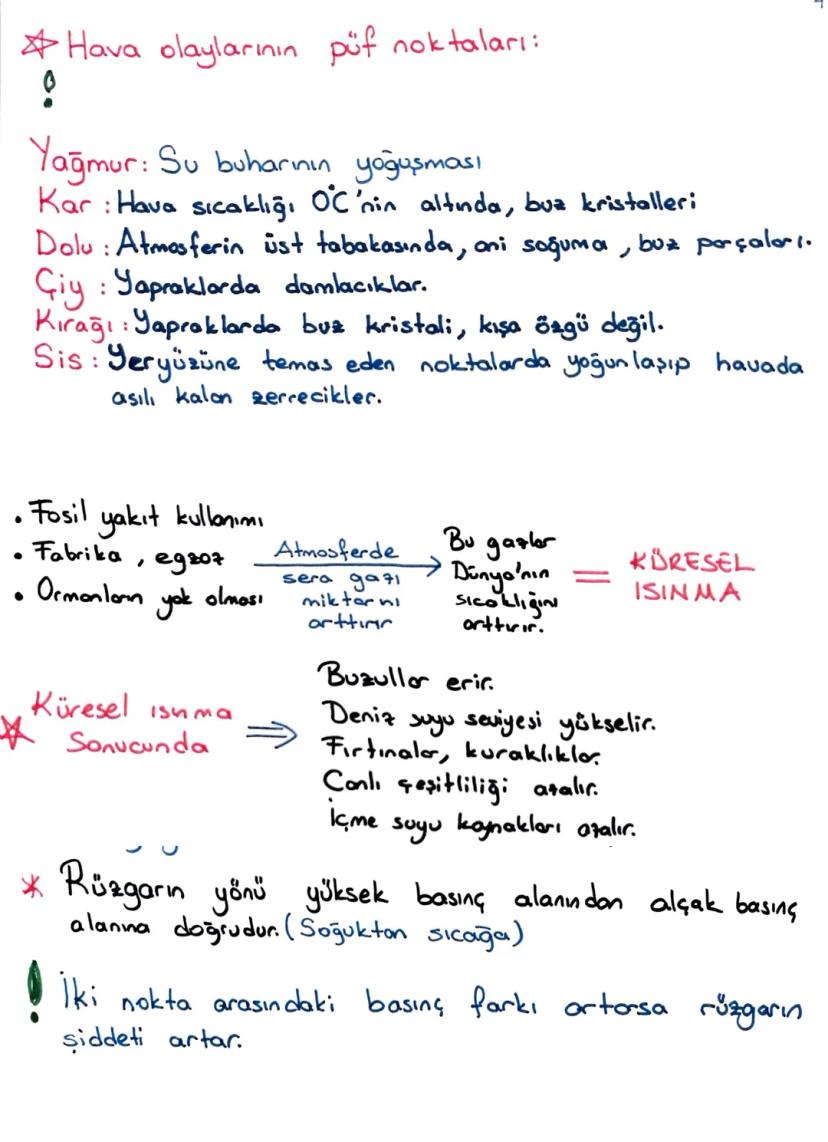 Hava olaylarının püf noktaları:
!
Yağmur: Su buharının yoğuşması
Kar : Hava sıcaklığı 0°C'nin altında, buz kristalleri
Dolu : Atmosferin üst tabakasında, ani soğuma, buz parçaları.
Çiy : Yapraklarda damlacıklar.
Kırağı : Yapraklarda buz kristali, kışa özgü değil.
Sis : Yeryüzüne temas eden noktalarda yoğunlaşıp havada
asılı kalan zerrecikler.
• Fosil yakıt kullanımı
• Fabrika, egzoz
• Ormanların yok olması
Atmosferde
sera gazı
miktarını
arttırır
Bu gazlar
Dünya'nın
sıcaklığını
arttırır.
= KÜRESEL
ISINMA
Küresel ısınma
Sonucunda
Buzullar erir.
Deniz suyu seviyesi yükselir.
Fırtınalar, kuraklıklar.
Canlı çeşitliliği azalır.
İçme suyu kaynakları azalır.
* Rüzgarın yönü yüksek basınç alanından alçak basınç
alanına doğrudur. (Soğuktan sıcağa)
! İki nokta arasındaki basınç farkı artarsa rüzgarın
şiddeti artar.